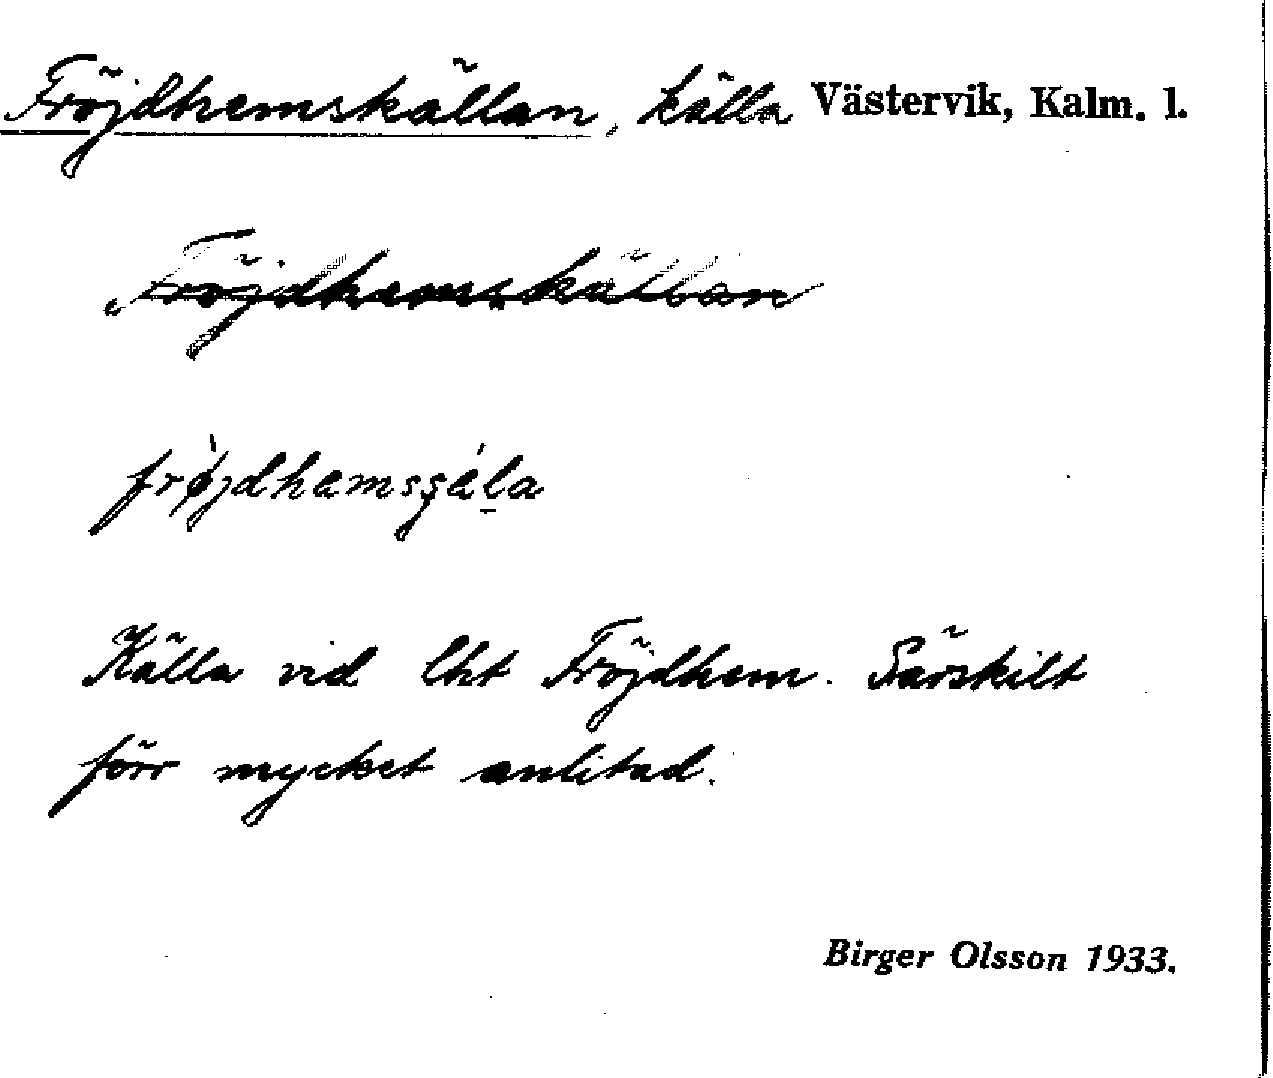 Fröjdhemskällan, källa Västervik, Kalm. l.
Fröjdhemskällan
Källa vid lht Fröjdhem. Särskilt
förr mycket anlitad.
Birger Olsson 1933.